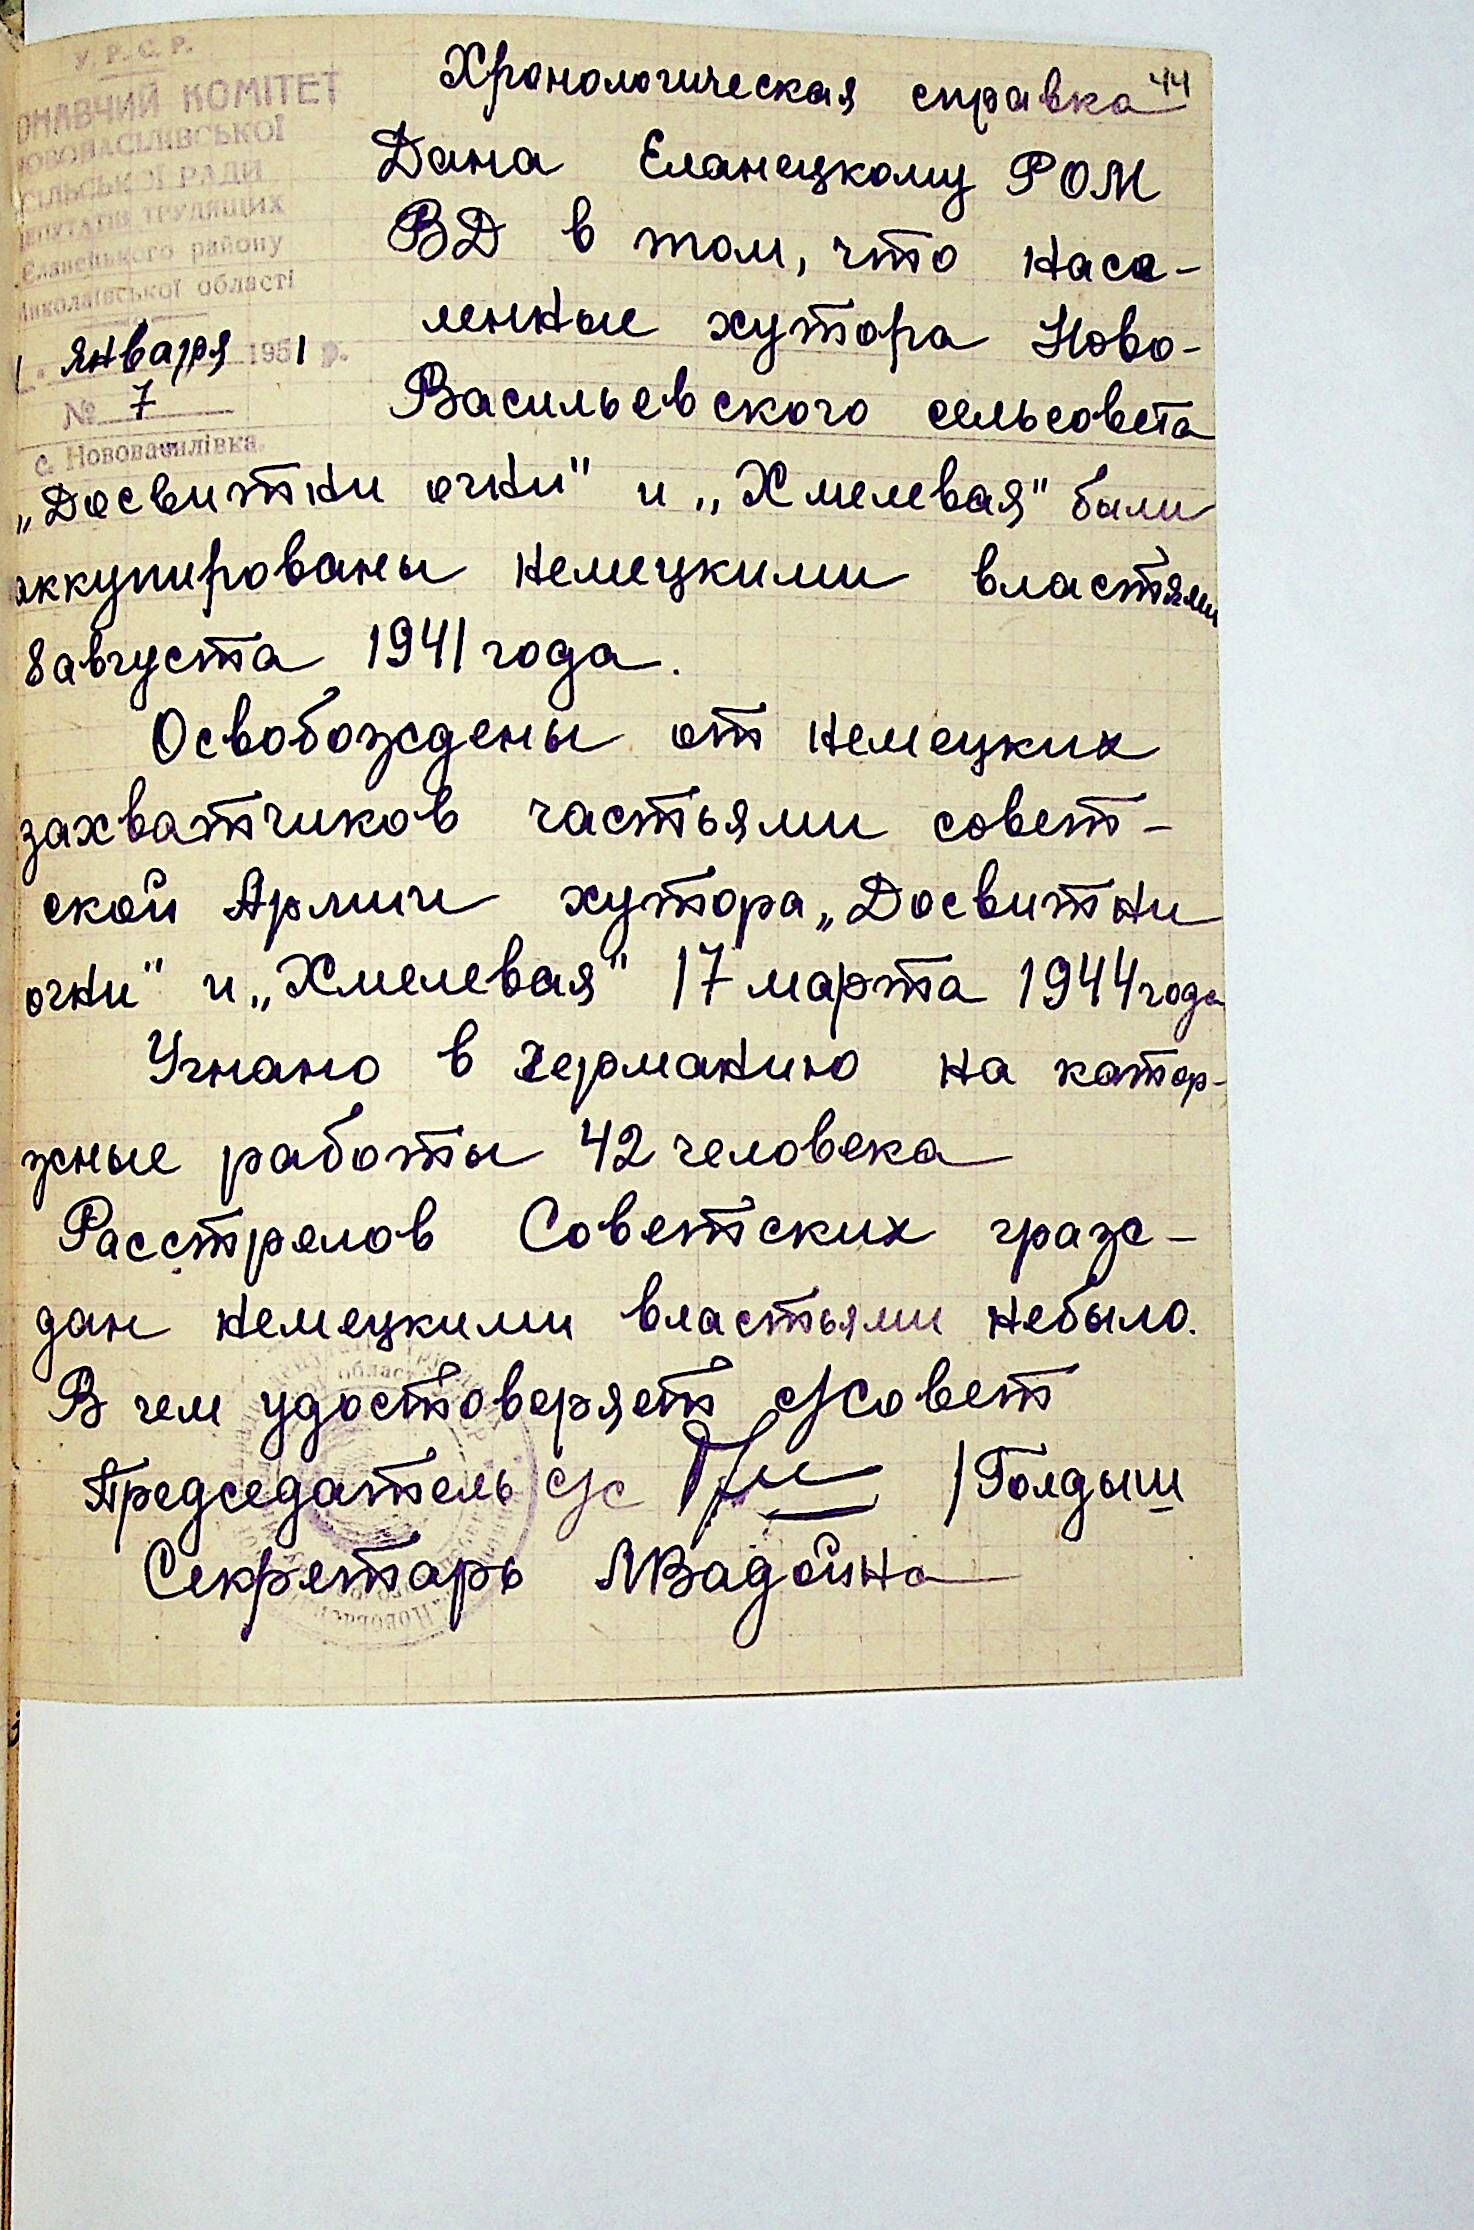 У. Р. С. Р.
ОНАВЧИЙ КОМІТЕТ
НОВОВАСИЛІВСЬКОЇ
СІЛЬСЬКОЇ РАДИ
ДЕПУТАТІВ ТРУДЯЩИХ
Єланецького району
Миколаївської області
января 1951 р.
№ 7
с. Нововасилівка.
44
Хронологическая справка
Дана Еланецкому РОМ
ВД в том, что насе-
ленные хутора Ново-
Васильевского сельсовета
„Досвитни очки" и „Хмелевая" были
оккупированы немецкими властями
8 августа 1941 года.
Освобождены от немецких
захватчиков частьями совет-
ской Армии хутора „Досвитни
очки" и „Хмелевая" 17 марта 1944 года
Угнано в германию на катор-
жные работы 42 человека
Расстрелов Советских граж-
дан немецкими властьями небыло.
В чем удостоверяет с/совет
Председатель с/с /Голдыш
Секретарь